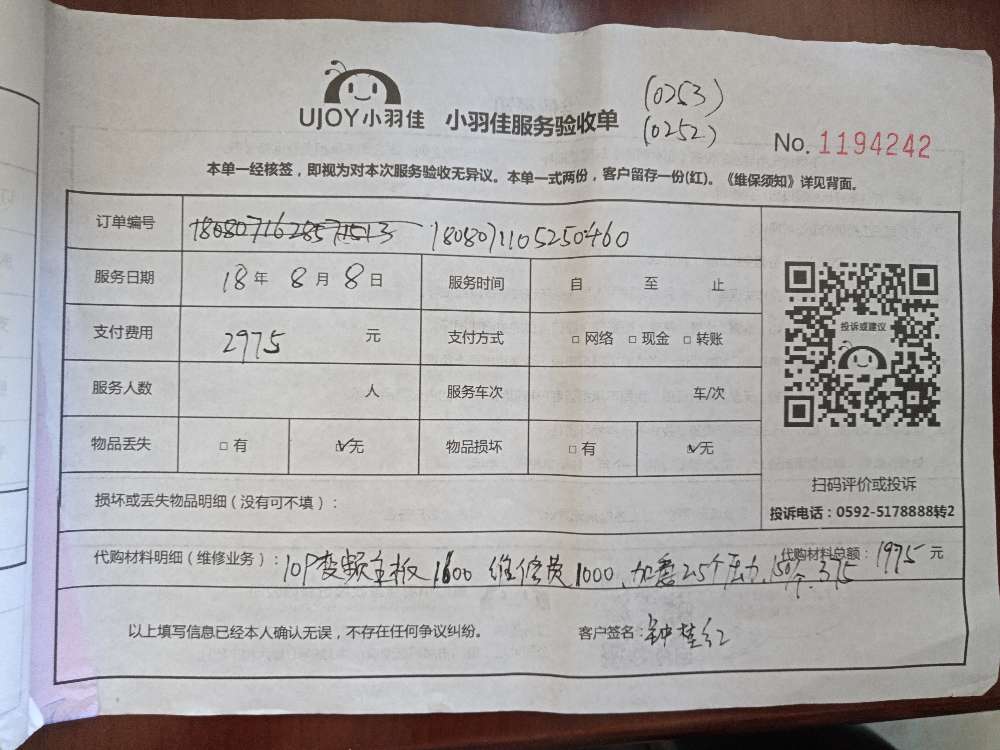 (0253)
UJOY小羽佳 小羽佳服务验收单
(0252)
No. 1194242
本单一经核签，即视为对本次服务验收无异议。本单一式两份，客户留存一份(红)。《维保须知》详见背面。
订单编号 1808071105250460
服务日期 18年 8月 8日 服务时间 自 至 止
投诉或建议
支付费用 2975 元 支付方式 □ 网络 □ 现金 □ 转账
服务人数 人 服务车次 车/次
物品丢失 □ 有 ☑无 物品损坏 □ 有 ☑无
扫码评价或投诉
损坏或丢失物品明细（没有可不填）：
投诉电话：0592-5178888转2
代购材料明细（维修业务）：10P变频主板1600 维修费1000、加氟2.5个压力,150/个.375
代购材料总额：1975 元
以上填写信息已经本人确认无误，不存在任何争议纠纷。 客户签名：钟桂红